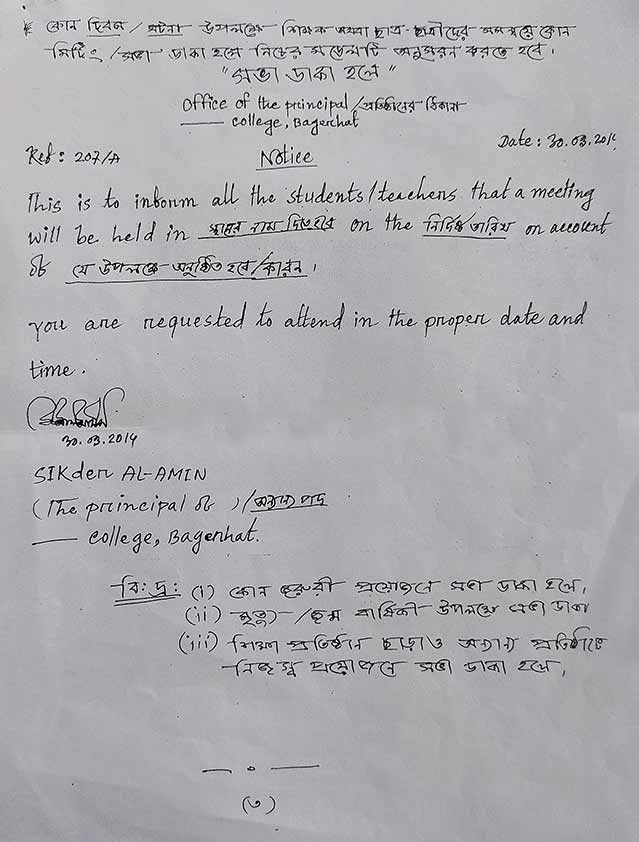 * কোন দিবস / ঘটনা উপলক্ষে শিক্ষক অথবা ছাত্র-ছাত্রীদের সমন্বয়ে কোন
মিটিং / সভা ডাকা হলে নিচের মডেলটি অনুসরন করতে হবে।
"সভা ডাকা হলে"
Office of the principal/প্রতিষ্ঠানের ঠিকানা
—— college, Bagerhat
Ref: 207/A
Date: 30.03.2014
Notice
This is to inform all the students/teachers that a meeting
will be held in স্থানের নাম দিতে হবে on the নির্দিষ্ট তারিখ on account
of যে উপলক্ষে অনুষ্ঠিত হবে/কারন।
you are requested to attend in the proper date and
time.
30.03.2014
SIKder AL-AMIN
(The principal of )/অন্যান্য পদ
—— college, Bagerhat.
বি:দ্র: (i) কোন জরুরী প্রয়োজনে সভা ডাকা হলে,
(ii) মৃত্যু / জন্ম বার্ষিকী উপলক্ষে সভা ডাকা
(iii) শিক্ষা প্রতিষ্ঠান ছাড়াও অন্যান্য প্রতিষ্ঠানে
নিজস্ব প্রয়োজনে সভা ডাকা হলে,
— ০ —
(৩)